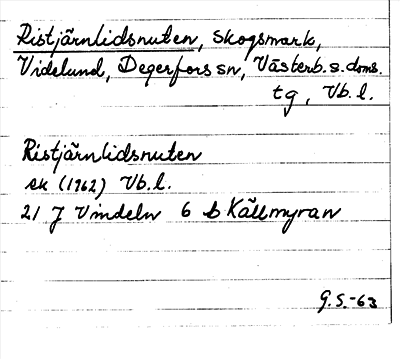 Ristjärnlidsnuten, skogsmark,
Videlund, Degerfors sn, Västerb. s. doms.
tg, Vb. l.
Ristjärnlidsnuten
ek (1962) Vb. l.
21 J Vindeln 6 b Källmyran
G. S. -63